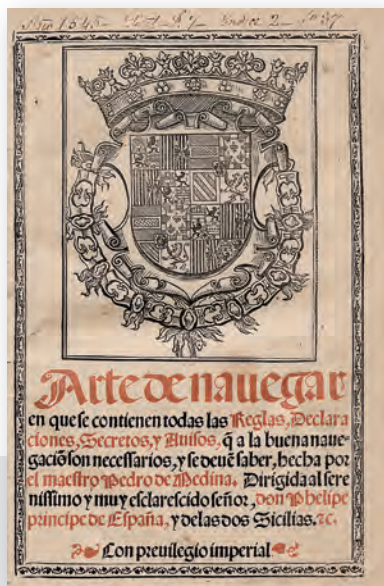 Año 1545
Arte de nauegar
en que se contienen todas las Reglas, Declara
ciones, Secretos, y Auisos, q̃ a la buena naue-
gaciõ son necessarios, y se deuẽ saber, hecha por
el maestro Pedro de Medina. Dirigida al sere
nissimo y muy esclarescido señor, don Phelipe
principe de España, y delas dos Sicilias. ⁊c.
Con preuilegio imperial